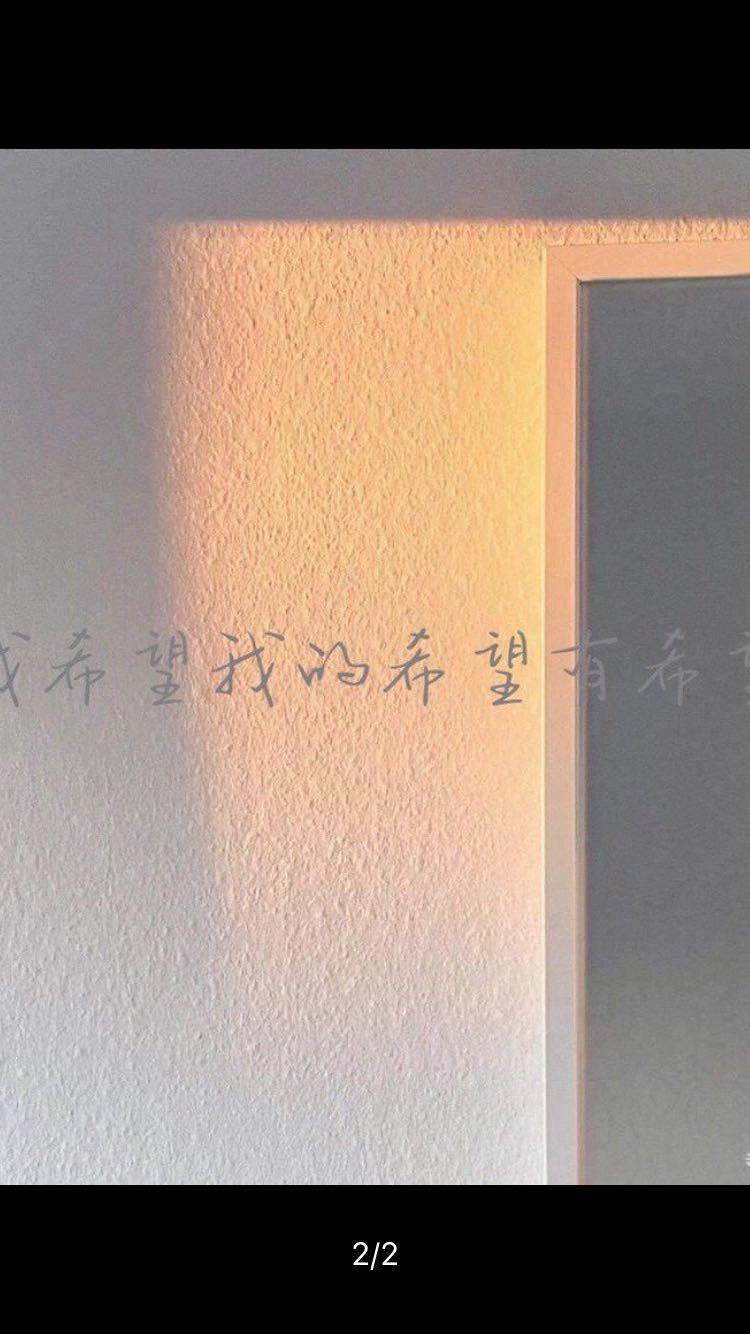 我希望我的希望有希
2/2